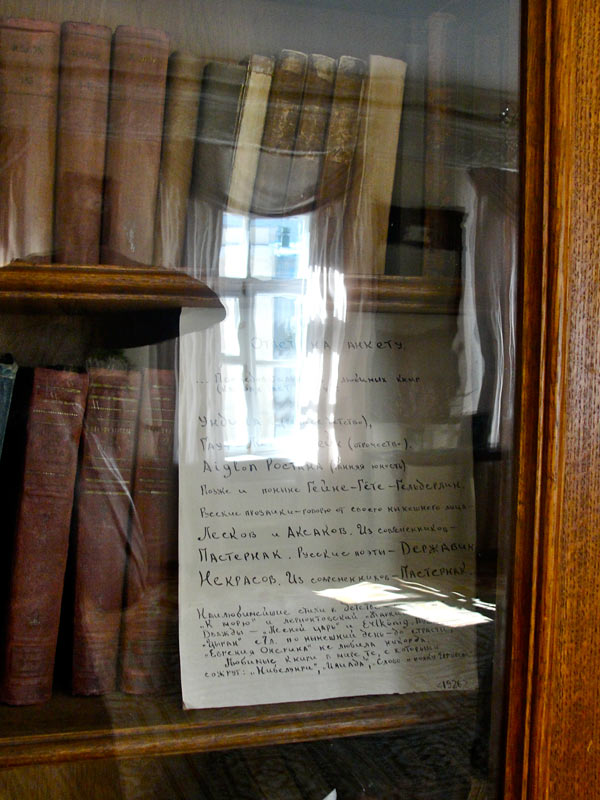 Ответ на анкету.
... любимых книг
Ундина (детство),
Гау (отрочество),
Aiglon Ростана (ранняя юность)
Позже и поныне Гейне–Гёте–Гёльдерлин.
Русские прозаики–говорю от своего нынешнего лица–
Лесков и Аксаков. Из современников–
Пастернак. Русские поэты–Державин
Некрасов. Из современников–Пастернак.
Наилюбимейшие стихи в детстве
"К морю" и лермонтовский "Жаркий
Дважды – "Лесной царь" и Erlkönig.
"Цыган" с 7 л. по нынешний день – до страсти.
"Евгения Онегина" не любила никогда.
Любимые книги в мире, те, с которыми
сожгут: "Нибелунги", "Илиада", Слово о полку Игореве
<1926>